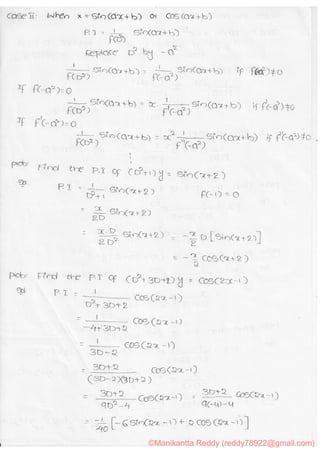 Case II: When x = Sin(ax+b) or Cos(ax+b)
P.I = 1/f(D²) Sin(ax+b)
Replace D² by -a²
1/f(D²) Sin(ax+b) = 1/f(-a²) Sin(ax+b) if f(-a²)≠0
If f(-a²)=0
1/f(D²) Sin(ax+b) = x 1/f'(-a²) Sin(ax+b) if f'(-a²)≠0
If f'(-a²)=0
1/f(D²) Sin(ax+b) = x² 1/f''(-a²) Sin(ax+b) if f''(-a²)≠0.
⋮
prob: Find the P.I of (D²+1)y = Sin(x+2)
Sol: P.I = 1/D²+1 Sin(x+2) f(-1) = 0
= x/2D Sin(x+2)
= x.D/2D² Sin(x+2) = -x/2 D[Sin(x+2)]
= -x/2 Cos(x+2)
prob: Find the P.I of (D²+3D+2)y = Cos(2x-1)
Sol P.I = 1/D²+3D+2 Cos(2x-1)
= 1/-4+3D+2 Cos(2x-1)
= 1/3D-2 Cos(2x-1)
= 3D+2/(3D-2)(3D+2) Cos(2x-1)
= 3D+2/9D²-4 Cos(2x-1) = 3D+2/9(-4)-4 Cos(2x-1)
= -1/40 [-6Sin(2x-1)+2Cos(2x-1)]
©Manikantta Reddy (reddy78922@gmail.com)